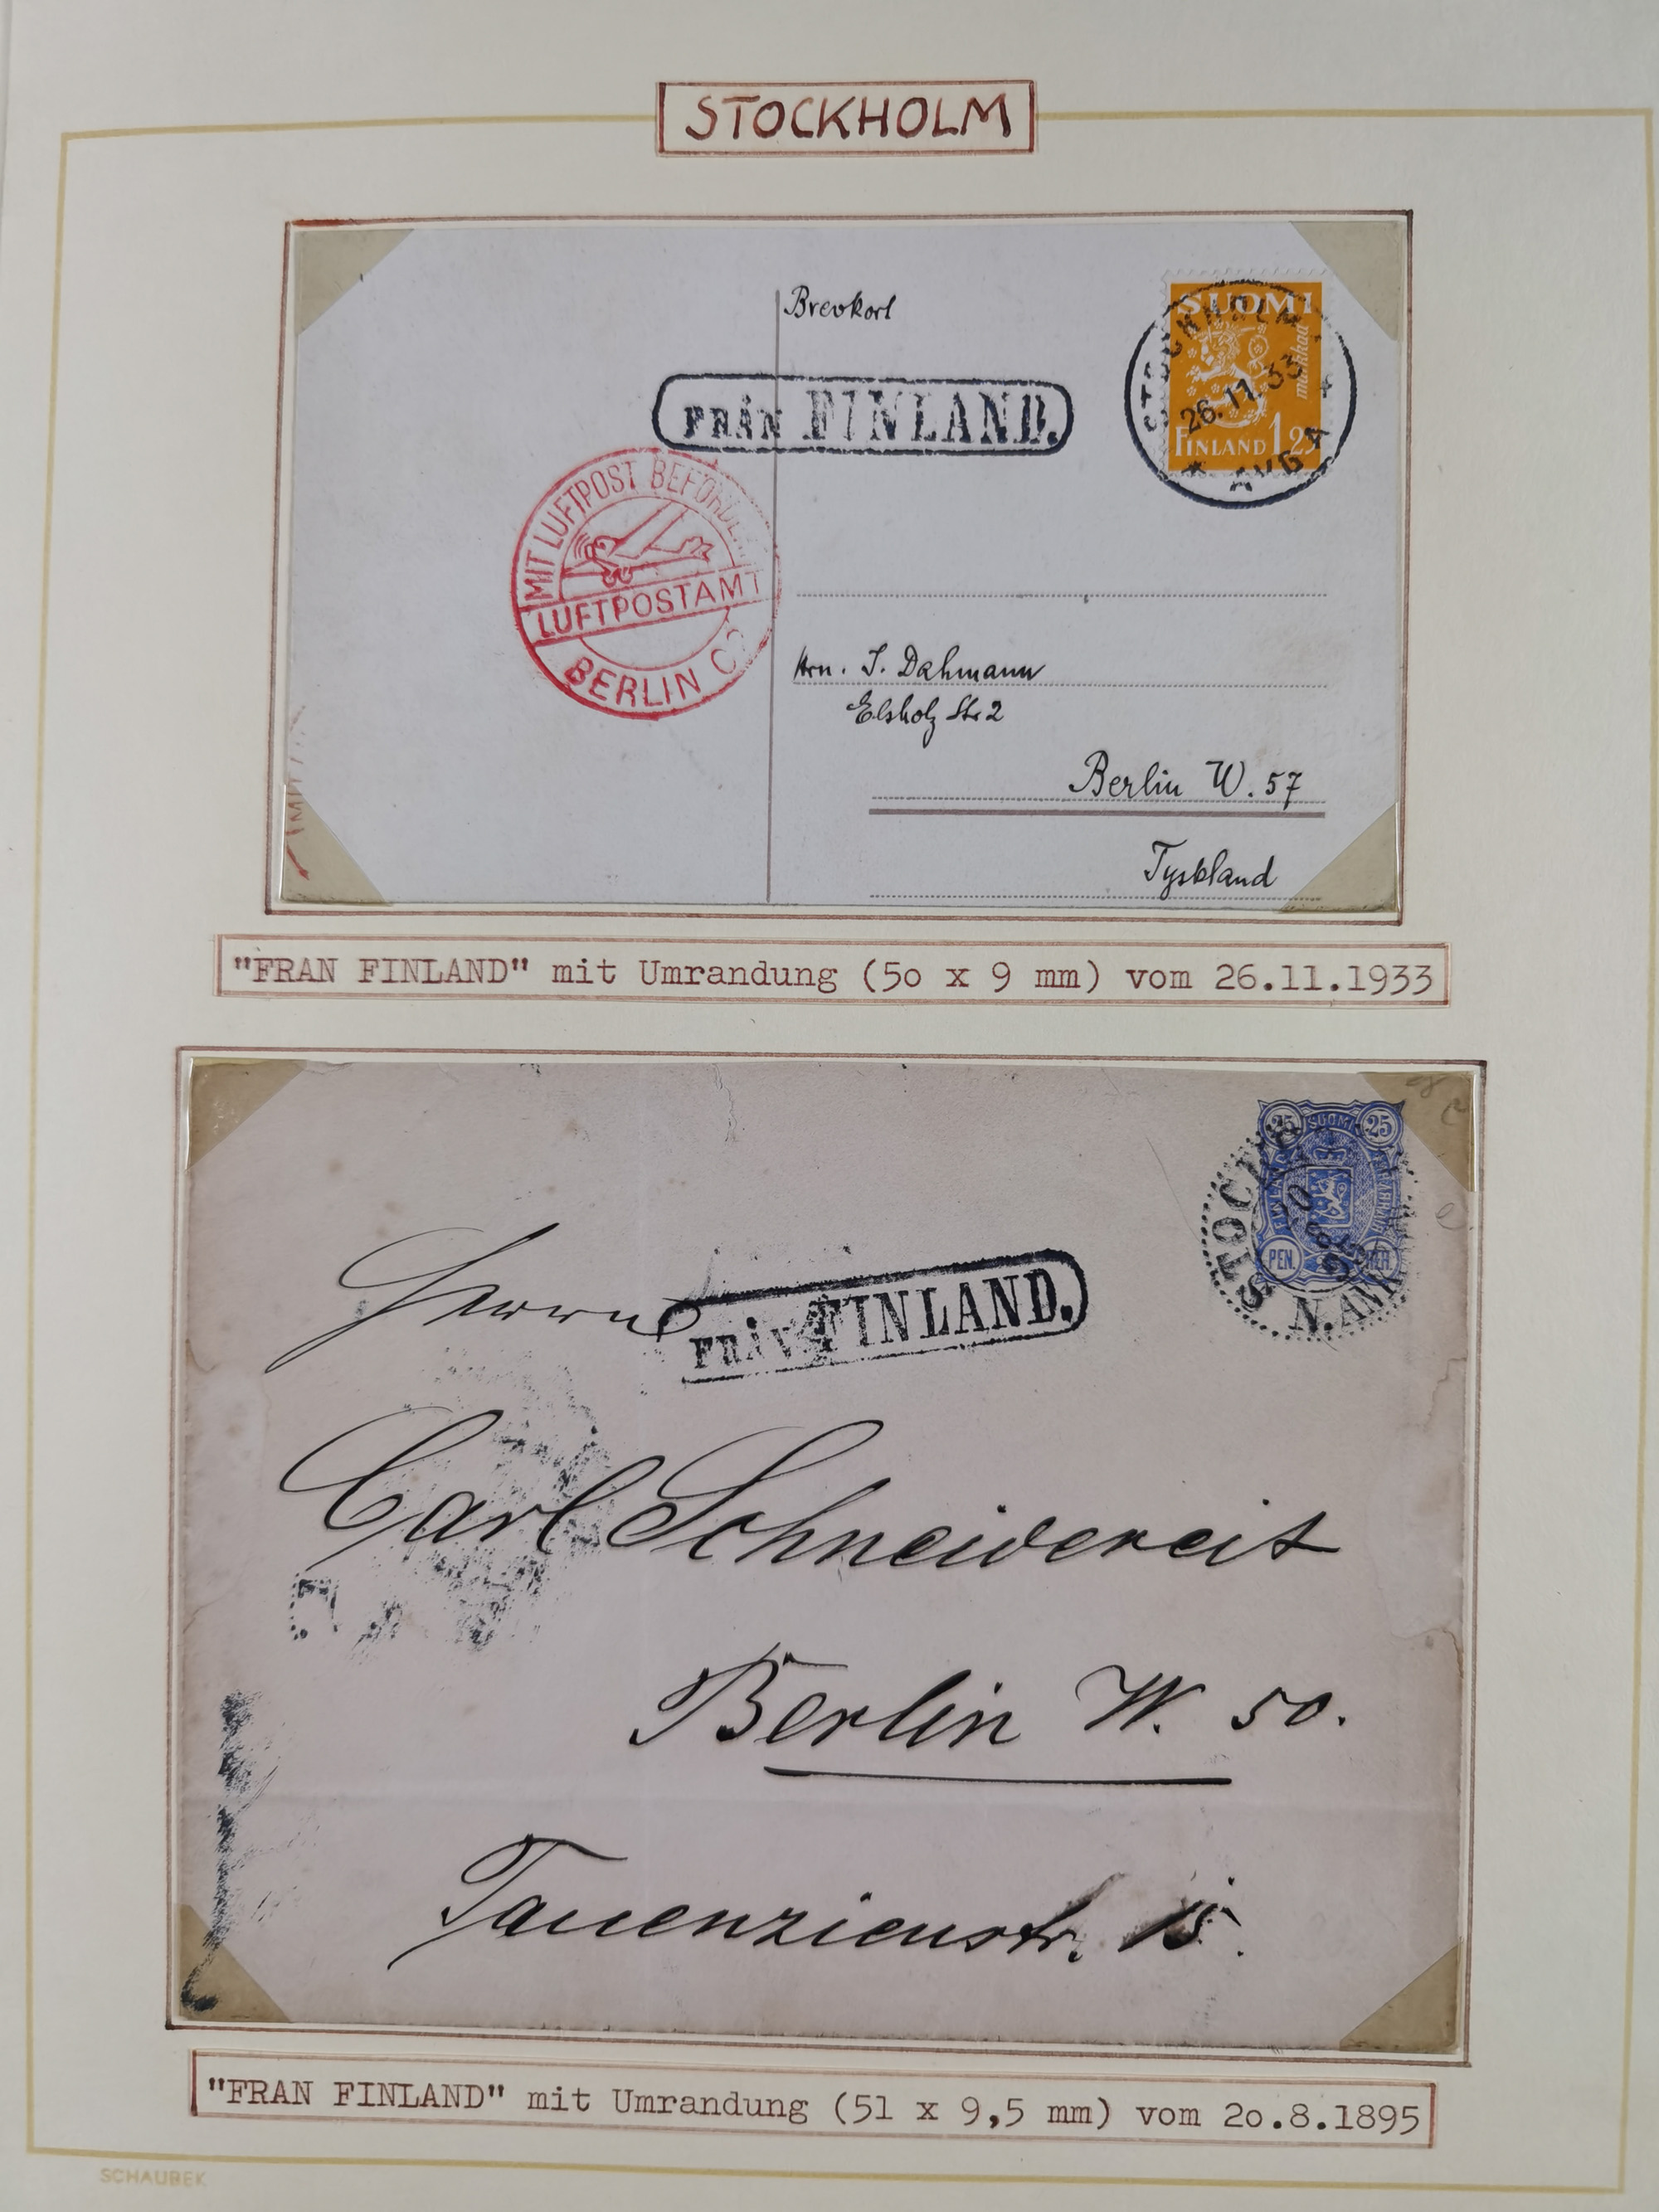 STOCKHOLM
Brevkort
SUOMI
markkaa
FINLAND 1 25
STOCKHOLM 1
26.11.33
AVG A
FRÅN FINLAND.
MIT LUFTPOST BEFÖRDE
LUFTPOSTAMT
BERLIN C
Hrn. I. Dahmann
Elsholz Str 2
Berlin W. 57
Tyskland
"FRAN FINLAND" mit Umrandung (50 x 9 mm) vom 26.11.1933
25 SUOMI 25
PEN.
STOCKH
N. AVG
Herrn
FRÅN FINLAND.
Carl Schneidereit
Berlin W. 50.
Tauenzienstr. 15.
"FRAN FINLAND" mit Umrandung (51 x 9,5 mm) vom 20.8.1895
SCHAUBEK